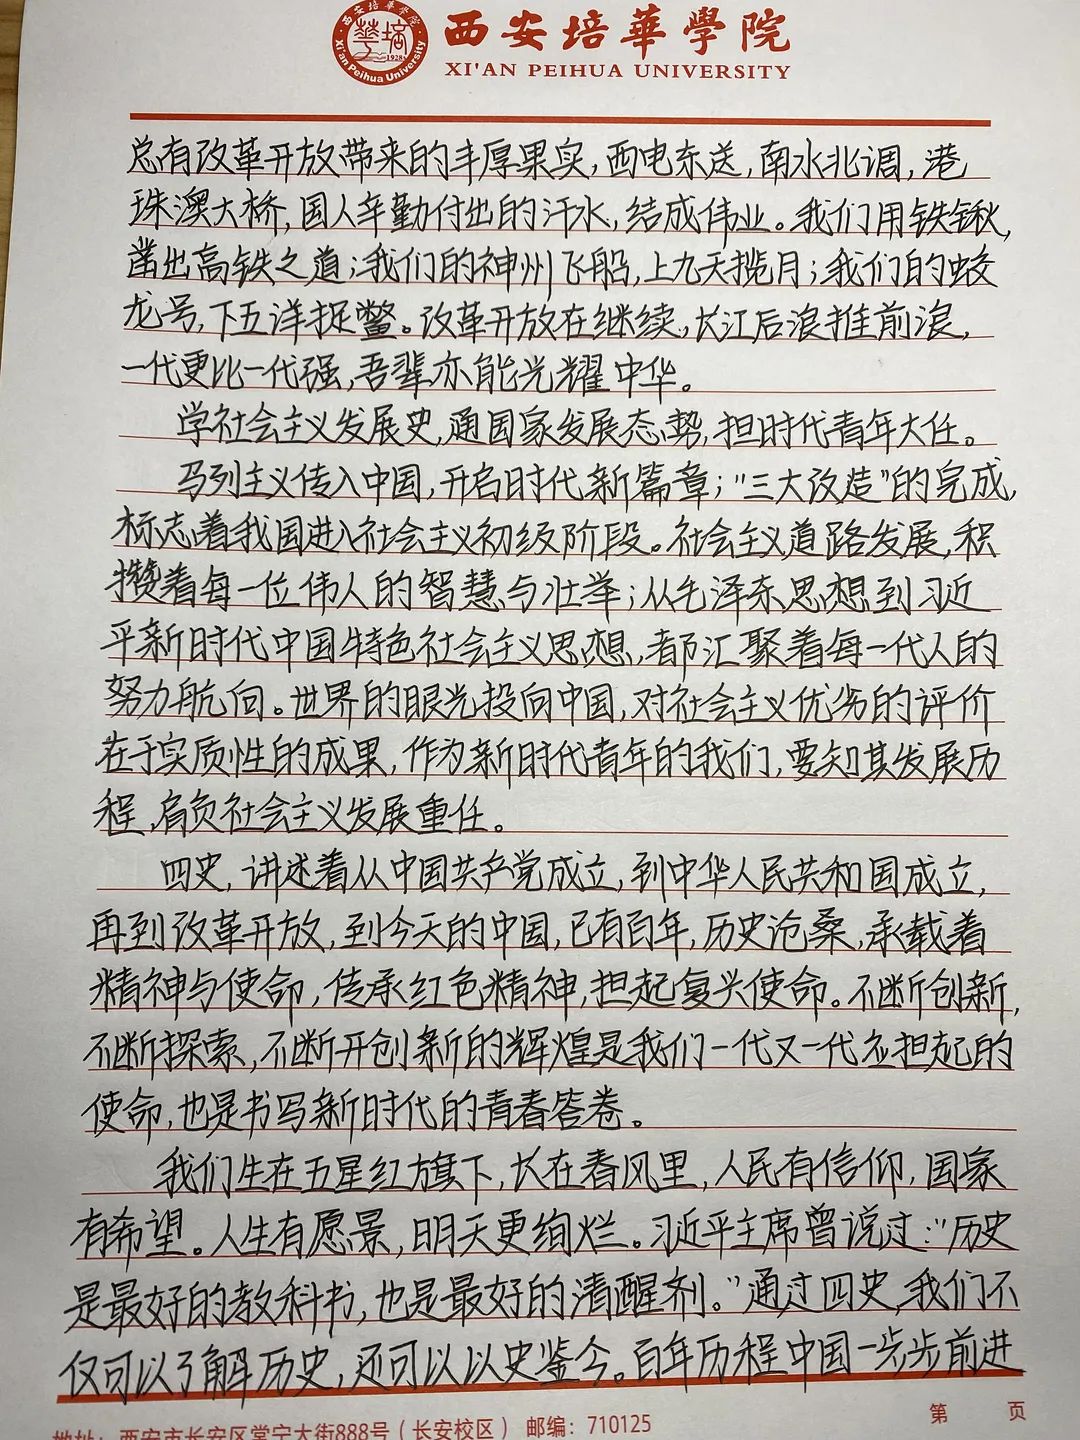 西安培華學院
XI'AN PEIHUA UNIVERSITY
西安培華學院
Xi'an Peihua University
1928
总有改革开放带来的丰厚果实,西电东送,南水北调,港
珠澳大桥,国人辛勤付出的汗水,结成伟业。我们用铁锹,
凿出高铁之道;我们的神州飞船,上九天揽月;我们的蛟
龙号,下五洋捉鳖。改革开放在继续,长江后浪推前浪,
一代更比一代强,吾辈亦能光耀中华。
学社会主义发展史,通国家发展态势,担时代青年大任。
马列主义传入中国,开启时代新篇章;"三大改造"的完成,
标志着我国进入社会主义初级阶段。社会主义道路发展,积
攒着每一位伟人的智慧与壮举;从毛泽东思想到习近
平新时代中国特色社会主义思想,都汇聚着每一代人的
努力航向。世界的眼光投向中国,对社会主义优劣的评价
在于实质性的成果,作为新时代青年的我们,要知其发展历
程,肩负社会主义发展重任。
四史,讲述着从中国共产党成立,到中华人民共和国成立,
再到改革开放,到今天的中国,已有百年,历史沧桑,承载着
精神与使命,传承红色精神,担起复兴使命。不断创新,
不断探索,不断开创新的辉煌是我们一代又一代应担起的
使命,也是书写新时代的青春答卷。
我们生在五星红旗下,长在春风里,人民有信仰,国家
有希望。人生有愿景,明天更绚烂。习近平主席曾说过:"历史
是最好的教科书,也是最好的清醒剂。"通过四史,我们不
仅可以了解历史,还可以以史鉴今。百年历程中国一步步前进
第 页
地址:西安市长安区常宁大街888号(长安校区) 邮编:710125